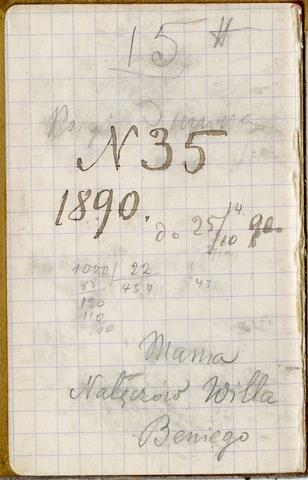 15 #
N 35
1890.
do 25/10 90.
1000/ 22
88 454
120
110
Mama
Nałęczów Willa
Beniego